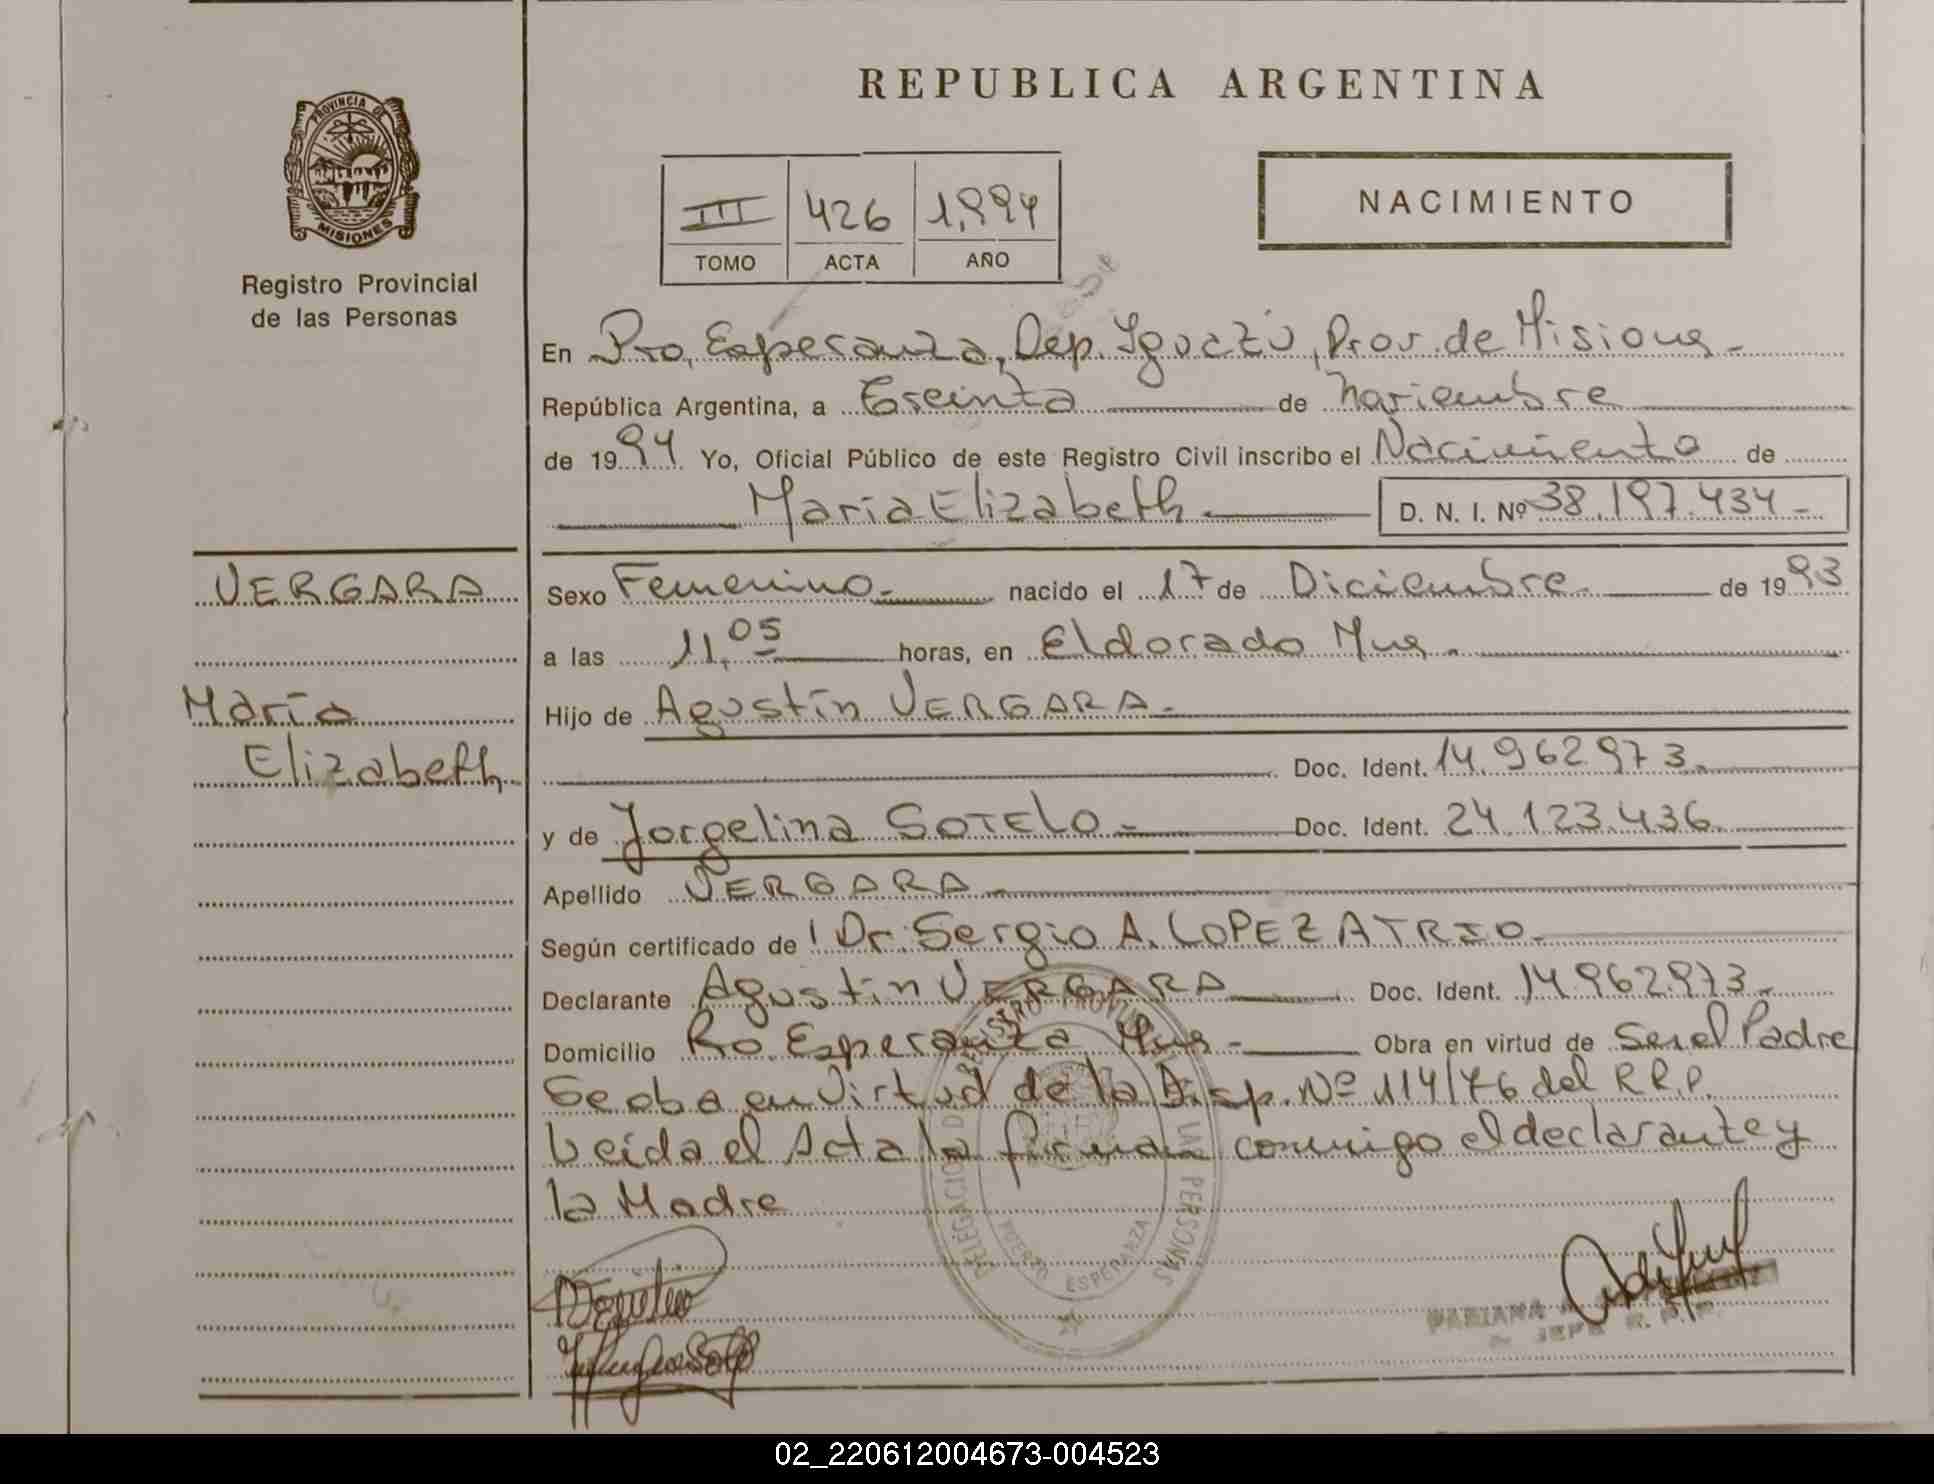 REPUBLICA ARGENTINA
PROVINCIA DE
MISIONES
Registro Provincial
de las Personas
III 426 1.994
TOMO ACTA AÑO
NACIMIENTO
En Pto. Esperanza, Dep. Iguazú, Prov. de Misiones
República Argentina, a treinta de noviembre
de 1994 Yo, Oficial Público de este Registro Civil inscribo el Nacimiento de
María Elizabeth D. N. I. Nº 38.197.434
VERGARA
María
Elizabeth
Sexo Femenino nacido el 17 de Diciembre de 1993
a las 11,05 horas, en Eldorado Mnes.
Hijo de Agustín VERGARA
Doc. Ident. 14.962.973
y de Jorgelina SOTELO Doc. Ident. 24.123.436
Apellido VERGARA
Según certificado de Dr. Sergio A. LOPEZ ATRIO
Declarante Agustín VERGARA Doc. Ident. 14.962.973
Domicilio Pto. Esperanza Mnes. Obra en virtud de Ser el Padre
Se oba en virtud de la Disp. Nº 114/76 del R.R.P.
Leída el Acta la firman conmigo el declarante y
la Madre
DELEGACION
REGISTRO PROVINCIAL
LAS PERSONAS
PUERTO ESPERANZA
JEFE R. P. P.
02_220612004673-004523